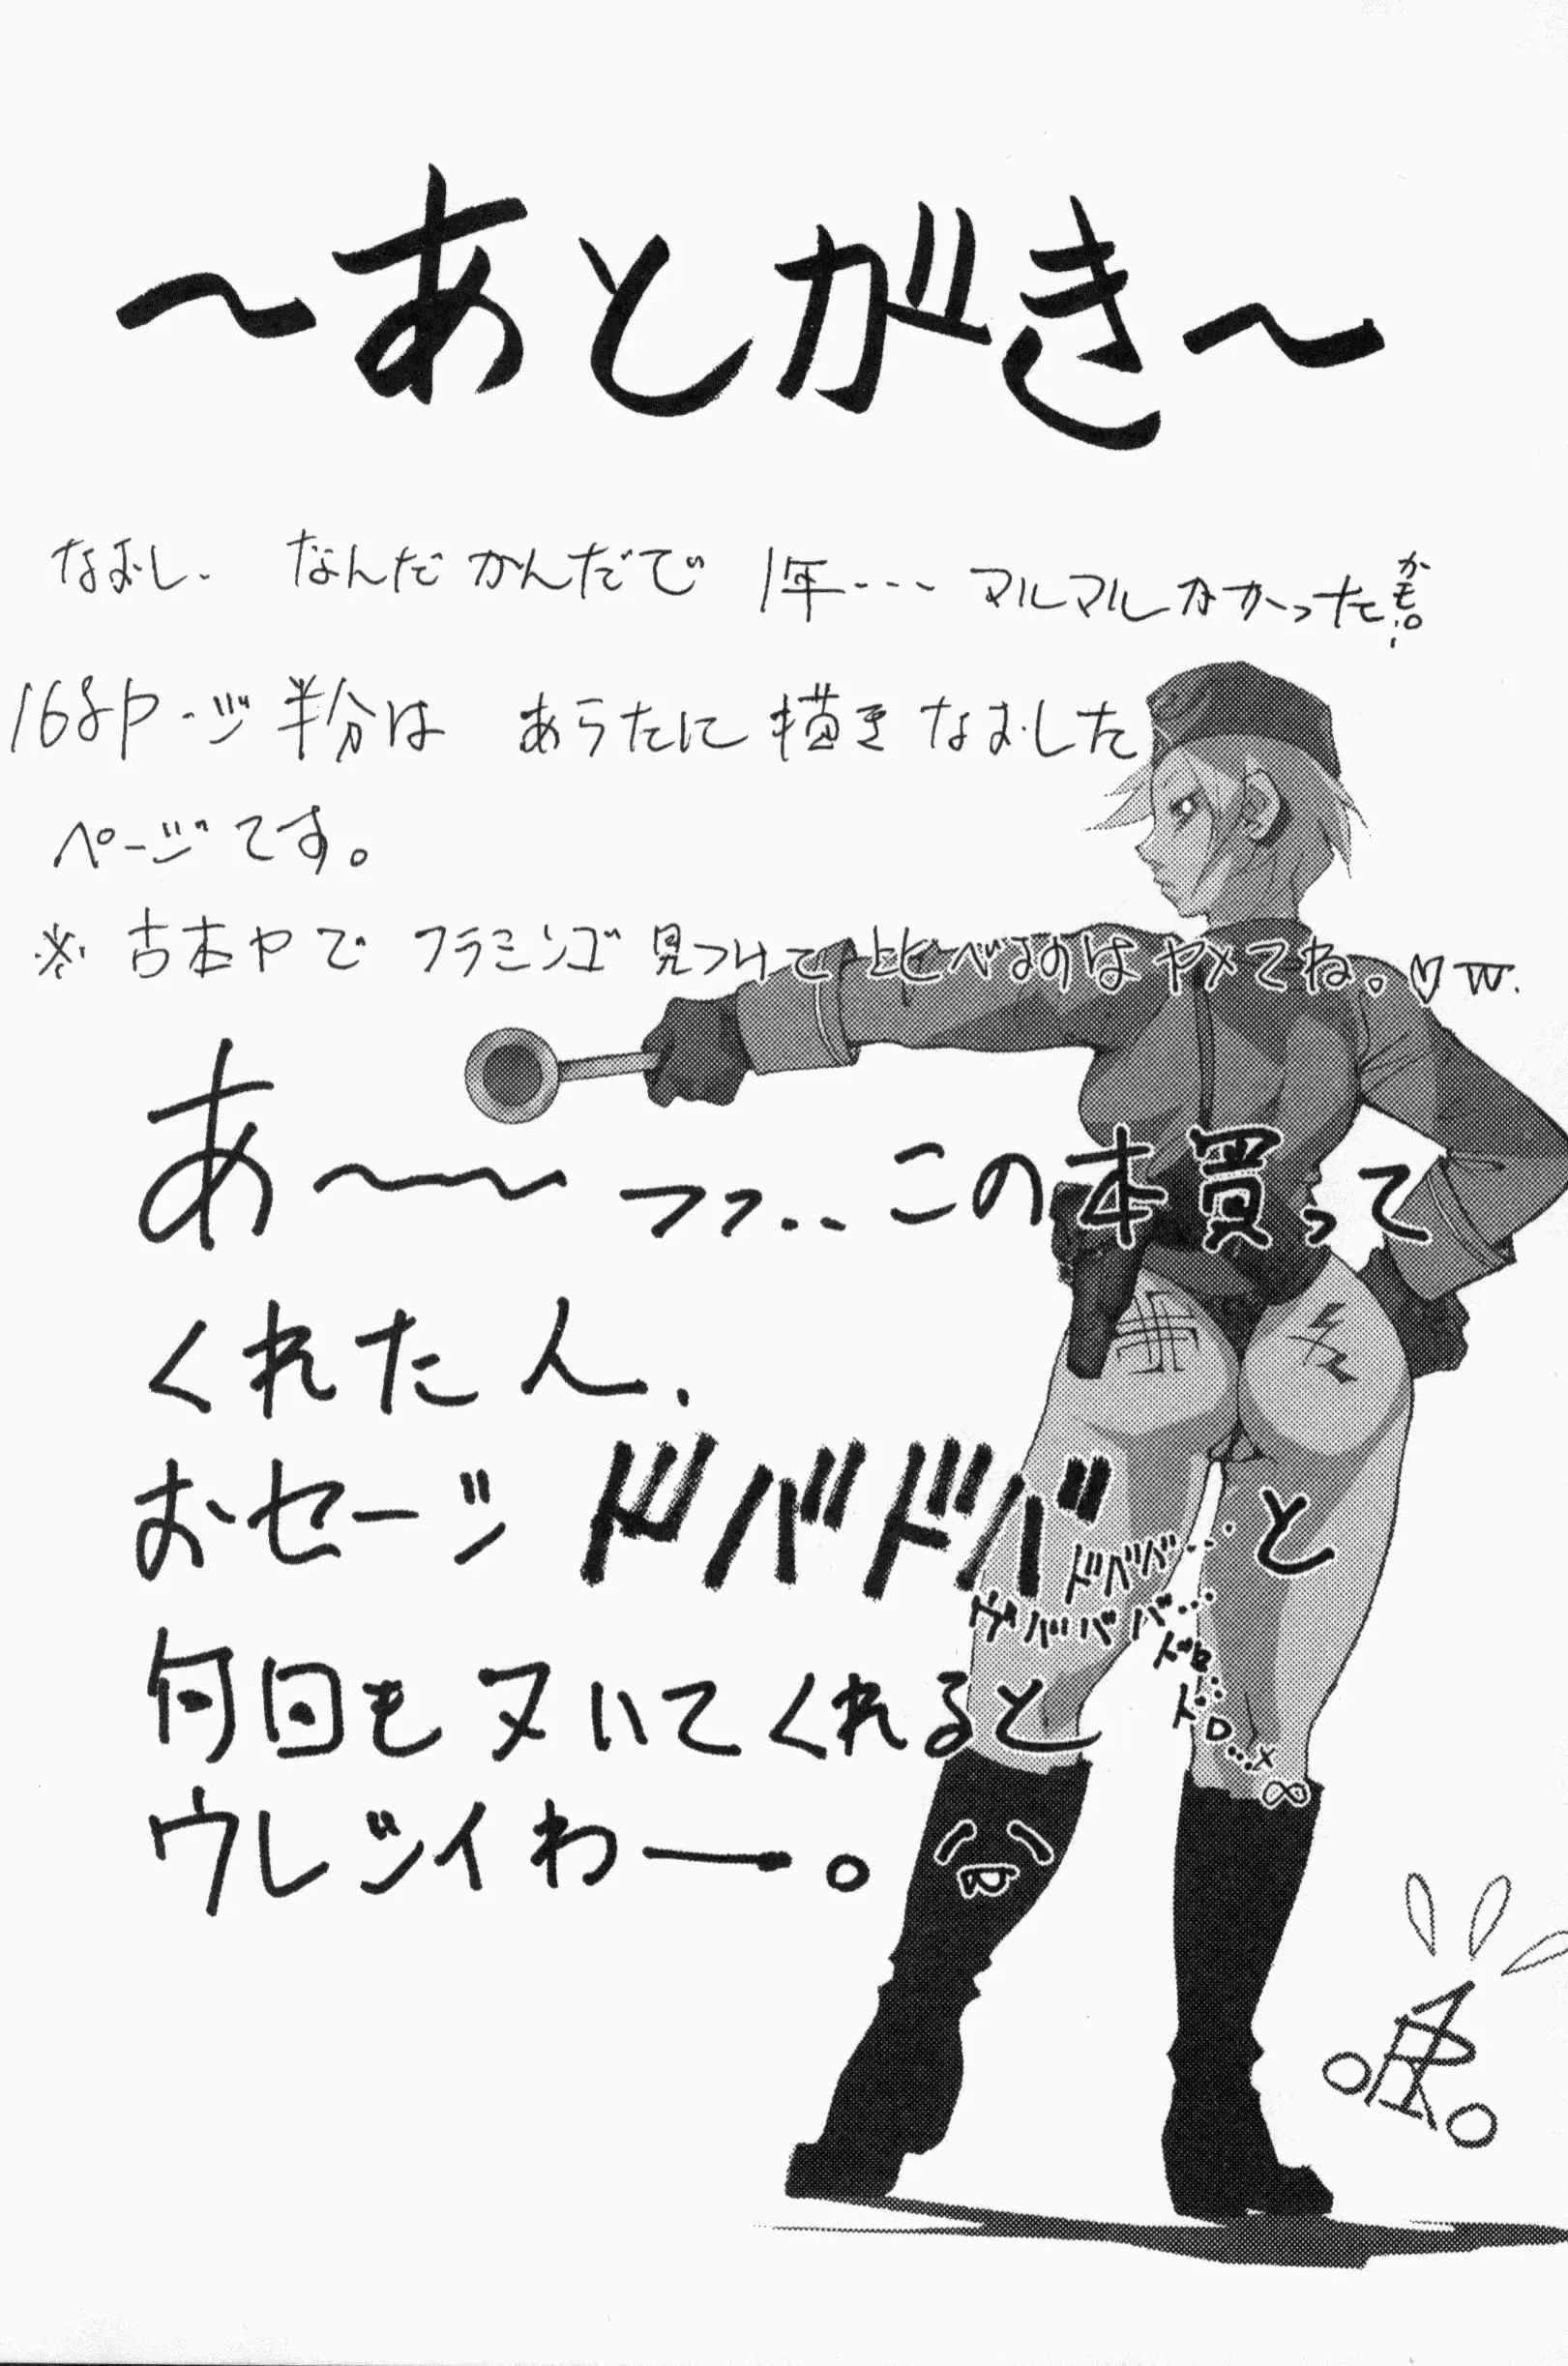 ～あとがき～
なおし、なんだかんだで 1年… マルマルしなかったかも!。
168P・ジ半分は あらたに描きなおした
ページです。
※古本ヤで フラミンゴ見つけて比べるのはヤメてね。
あ〜〜ッッ..この本買って
くれた人、
おセージ ドバドバと
ドバババ…
バババ…
何回もヌいてくれると
ウレツイわー。